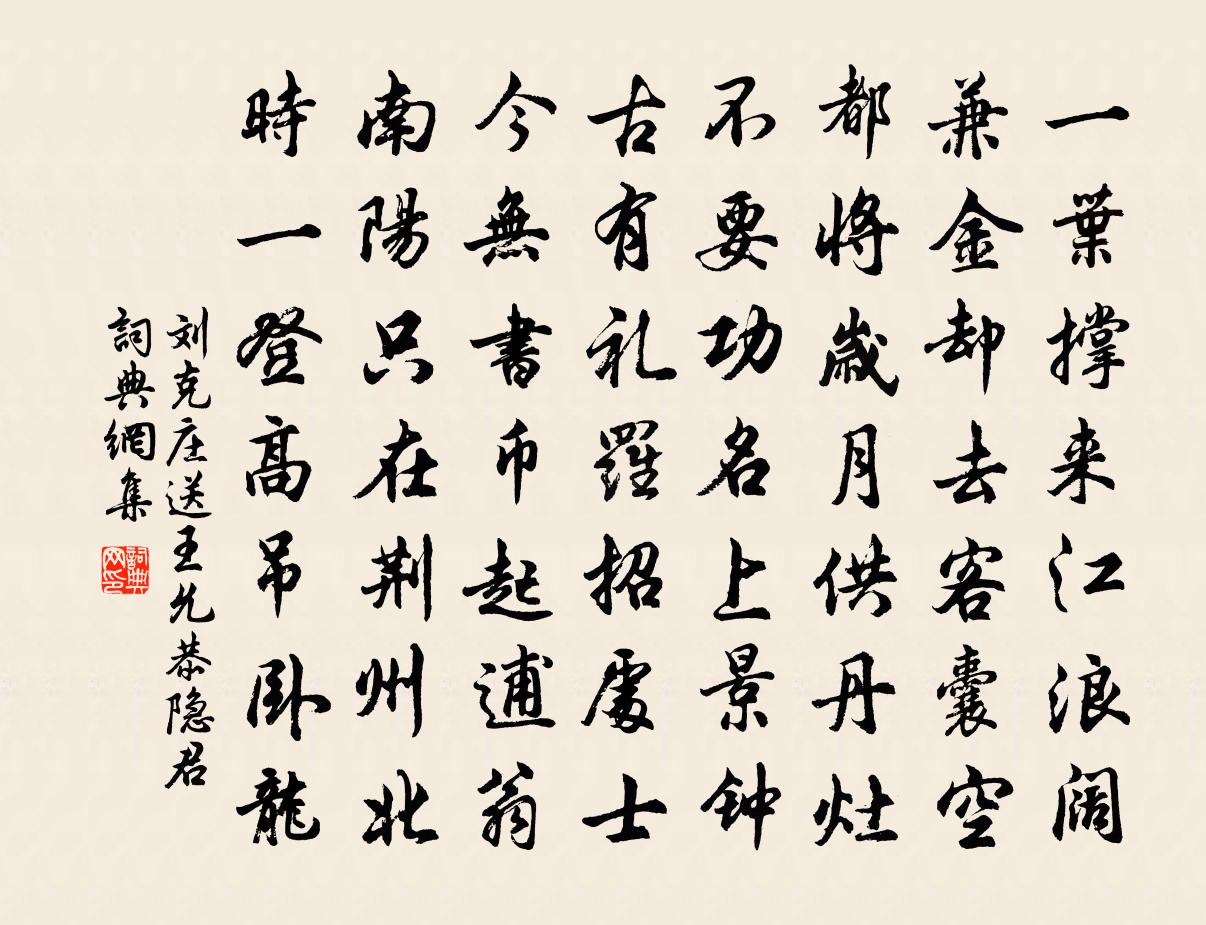 一葉撑来江浪阔
兼金却去客囊空
都將歲月供丹灶
不要功名上景钟
古有礼羅招處士
今無書币起逋翁
南陽只在荆州北
時一登高吊卧龍
刘克庄送王允恭隐君
詞典網集
詞典网印